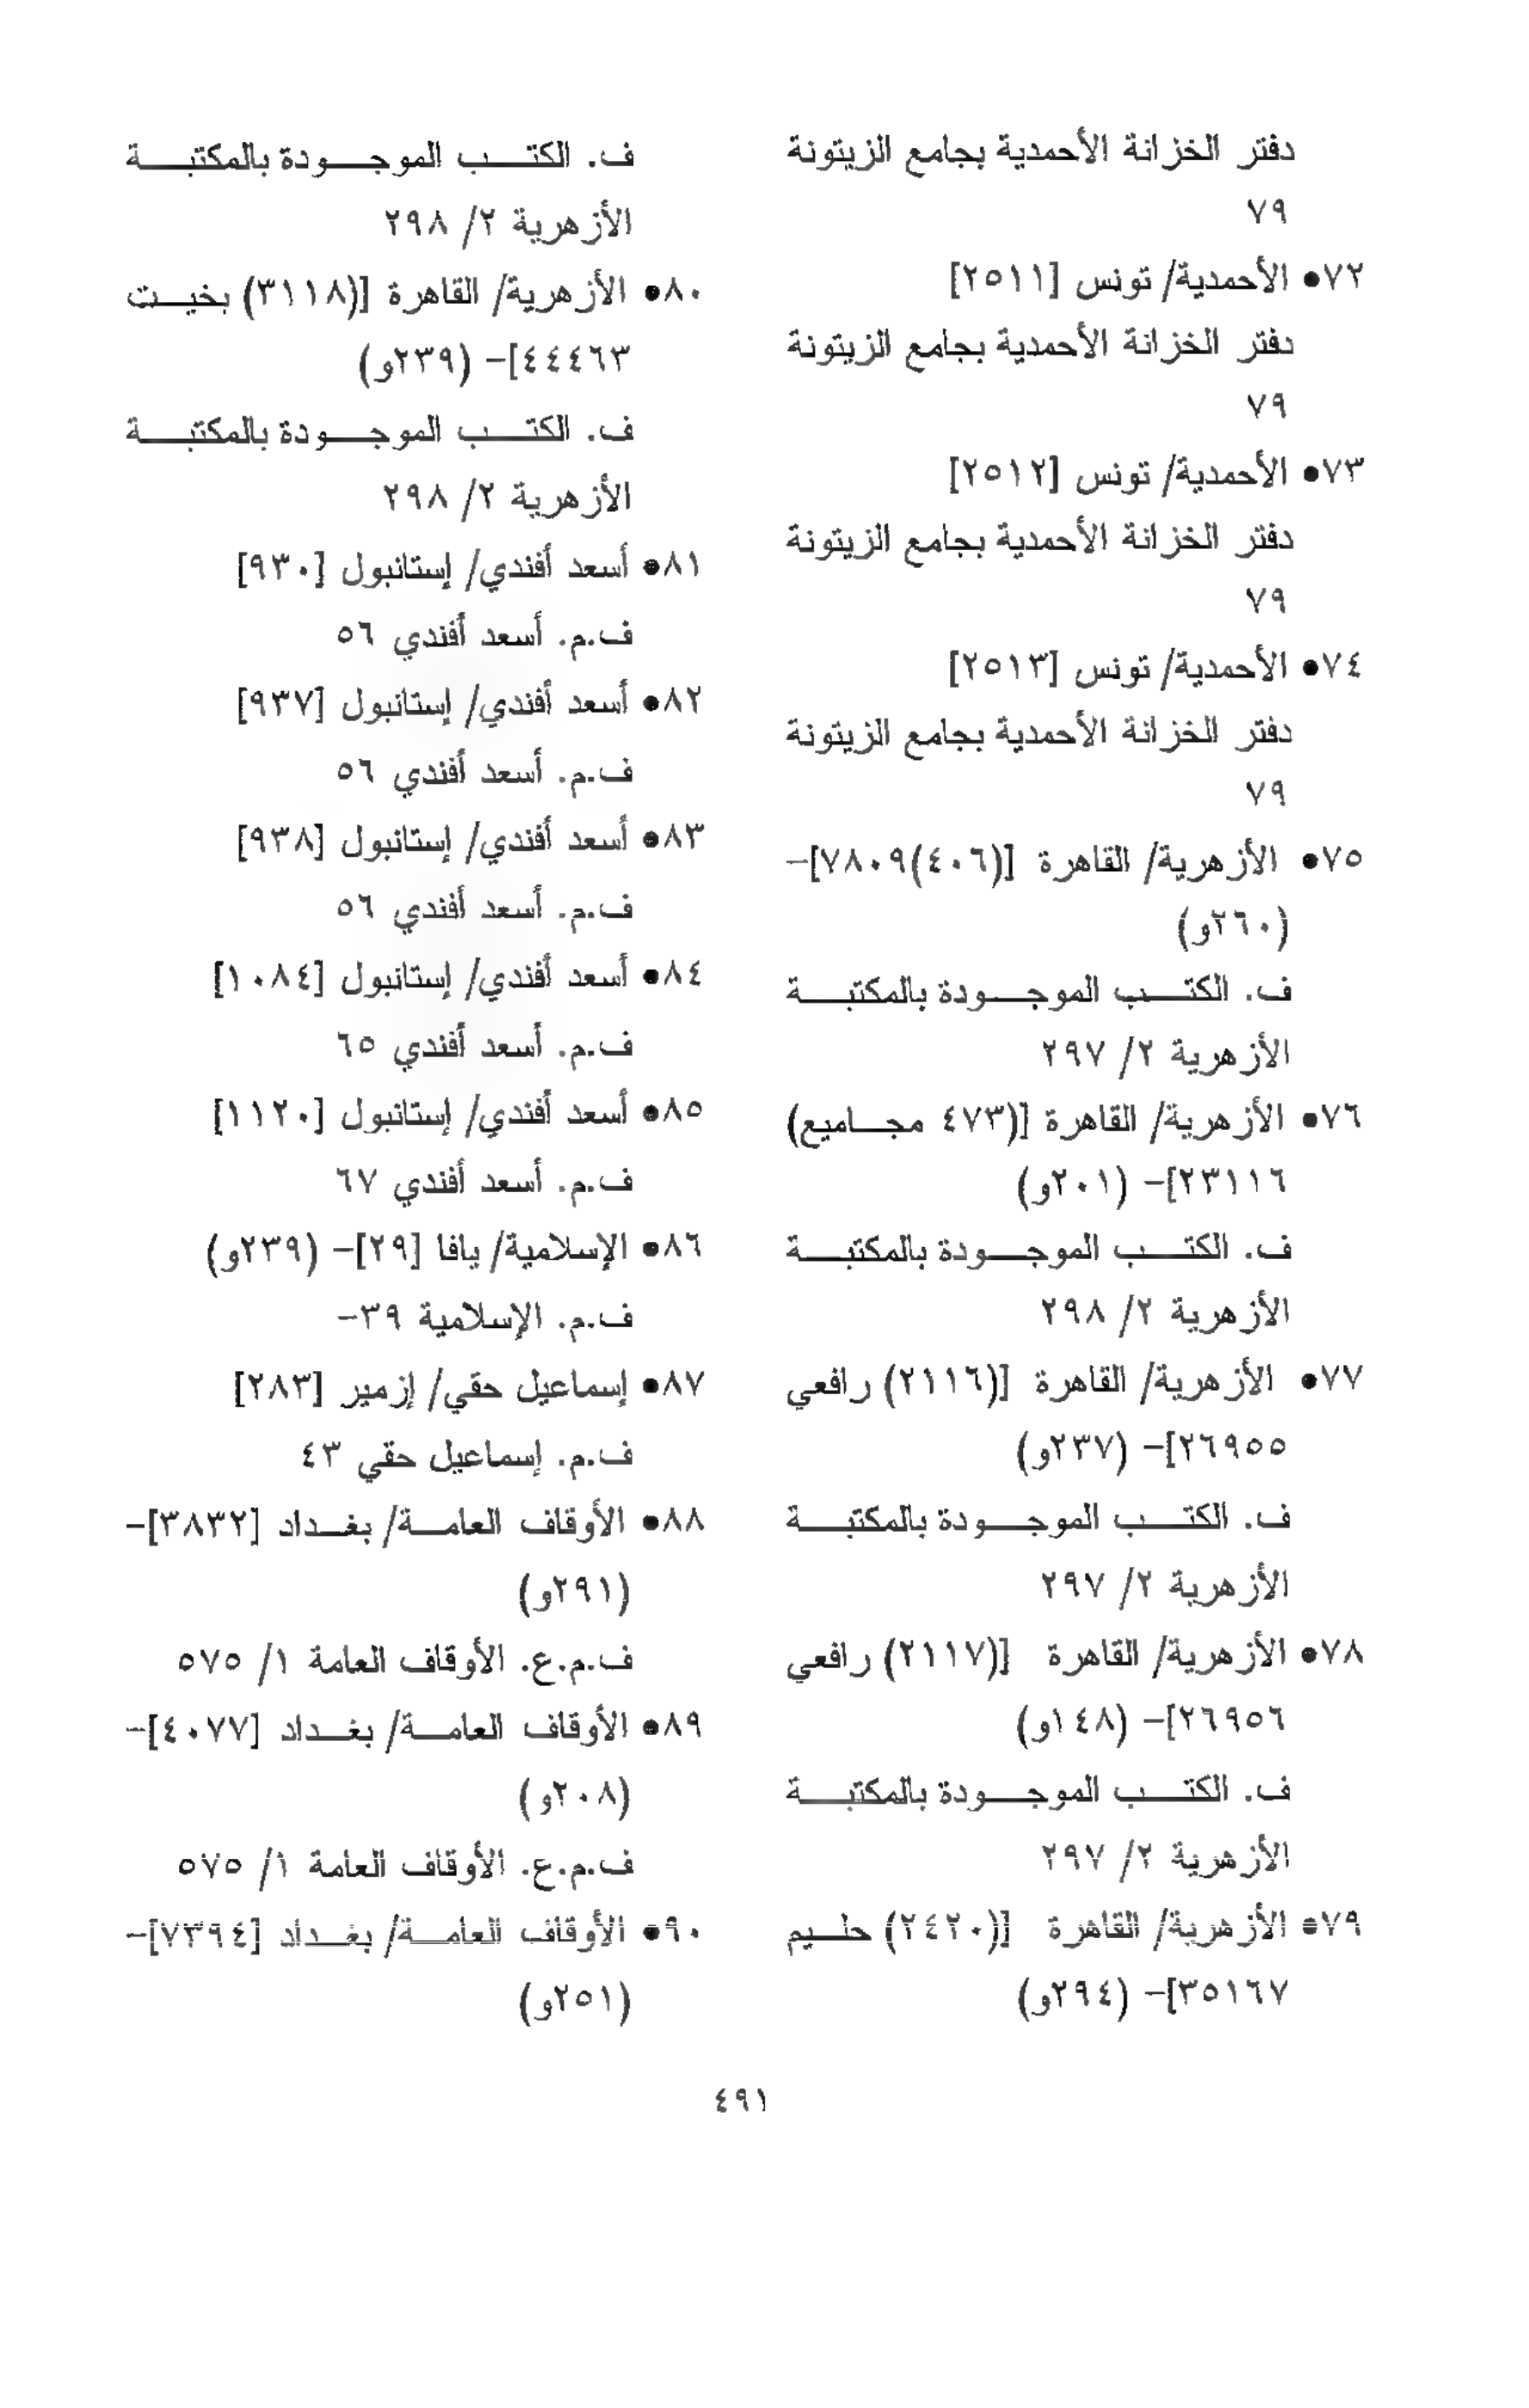 دفتر الخزانة الأحمدية بجامع الزيتونة
٧٩
٧٢● الأحمدية/ تونس [٢٥١١]
دفتر الخزانة الأحمدية بجامع الزيتونة
٧٩
٧٣● الأحمدية/ تونس [٢٥١٢]
دفتر الخزانة الأحمدية بجامع الزيتونة
٧٩
٧٤● الأحمدية/ تونس [٢٥١٣]
دفتر الخزانة الأحمدية بجامع الزيتونة
٧٩
٧٥● الأزهرية/ القاهرة [(٤٠٦)٧٨٠٩]-
(٢٦٠و)
ف. الكتب الموجودة بالمكتبة
الأزهرية ٢/ ٢٩٧
٧٦● الأزهرية/ القاهرة [(٤٧٣ مجاميع)
٢٣١١٦]- (٢٠١و)
ف. الكتب الموجودة بالمكتبة
الأزهرية ٢/ ٢٩٨
٧٧● الأزهرية/ القاهرة [(٢١١٦) رافعي
٢٦٩٥٥]- (٢٣٧و)
ف. الكتب الموجودة بالمكتبة
الأزهرية ٢/ ٢٩٧
٧٨● الأزهرية/ القاهرة [(٢١١٧) رافعي
٢٦٩٥٦]- (١٤٨و)
ف. الكتب الموجودة بالمكتبة
الأزهرية ٢/ ٢٩٧
٧٩● الأزهرية/ القاهرة [(٢٤٢٠) حليم
٣٥١٦٧]- (٢٩٤و)
ف. الكتب الموجودة بالمكتبة
الأزهرية ٢/ ٢٩٨
٨٠● الأزهرية/ القاهرة [(٣١١٨) بخيت
٤٤٤٦٣]- (٢٣٩و)
ف. الكتب الموجودة بالمكتبة
الأزهرية ٢/ ٢٩٨
٨١● أسعد أفندي/ إستانبول [٩٣٠]
ف.م. أسعد أفندي ٥٦
٨٢● أسعد أفندي/ إستانبول [٩٣٧]
ف.م. أسعد أفندي ٥٦
٨٣● أسعد أفندي/ إستانبول [٩٣٨]
ف.م. أسعد أفندي ٥٦
٨٤● أسعد أفندي/ إستانبول [١٠٨٤]
ف.م. أسعد أفندي ٦٥
٨٥● أسعد أفندي/ إستانبول [١١٢٠]
ف.م. أسعد أفندي ٦٧
٨٦● الإسلامية/ يافا [٢٩]- (٢٣٩و)
ف.م. الإسلامية ٣٩-
٨٧● إسماعيل حقي/ إزمير [٢٨٣]
ف.م. إسماعيل حقي ٤٣
٨٨● الأوقاف العامة/ بغداد [٣٨٣٢]-
(٢٩١و)
ف.م.ع. الأوقاف العامة ١/ ٥٧٥
٨٩● الأوقاف العامة/ بغداد [٤٠٧٧]-
(٢٠٨و)
ف.م.ع. الأوقاف العامة ١/ ٥٧٥
٩٠● الأوقاف العامة/ بغداد [٧٣٩٤]-
(٢٥١و)
٤٩١